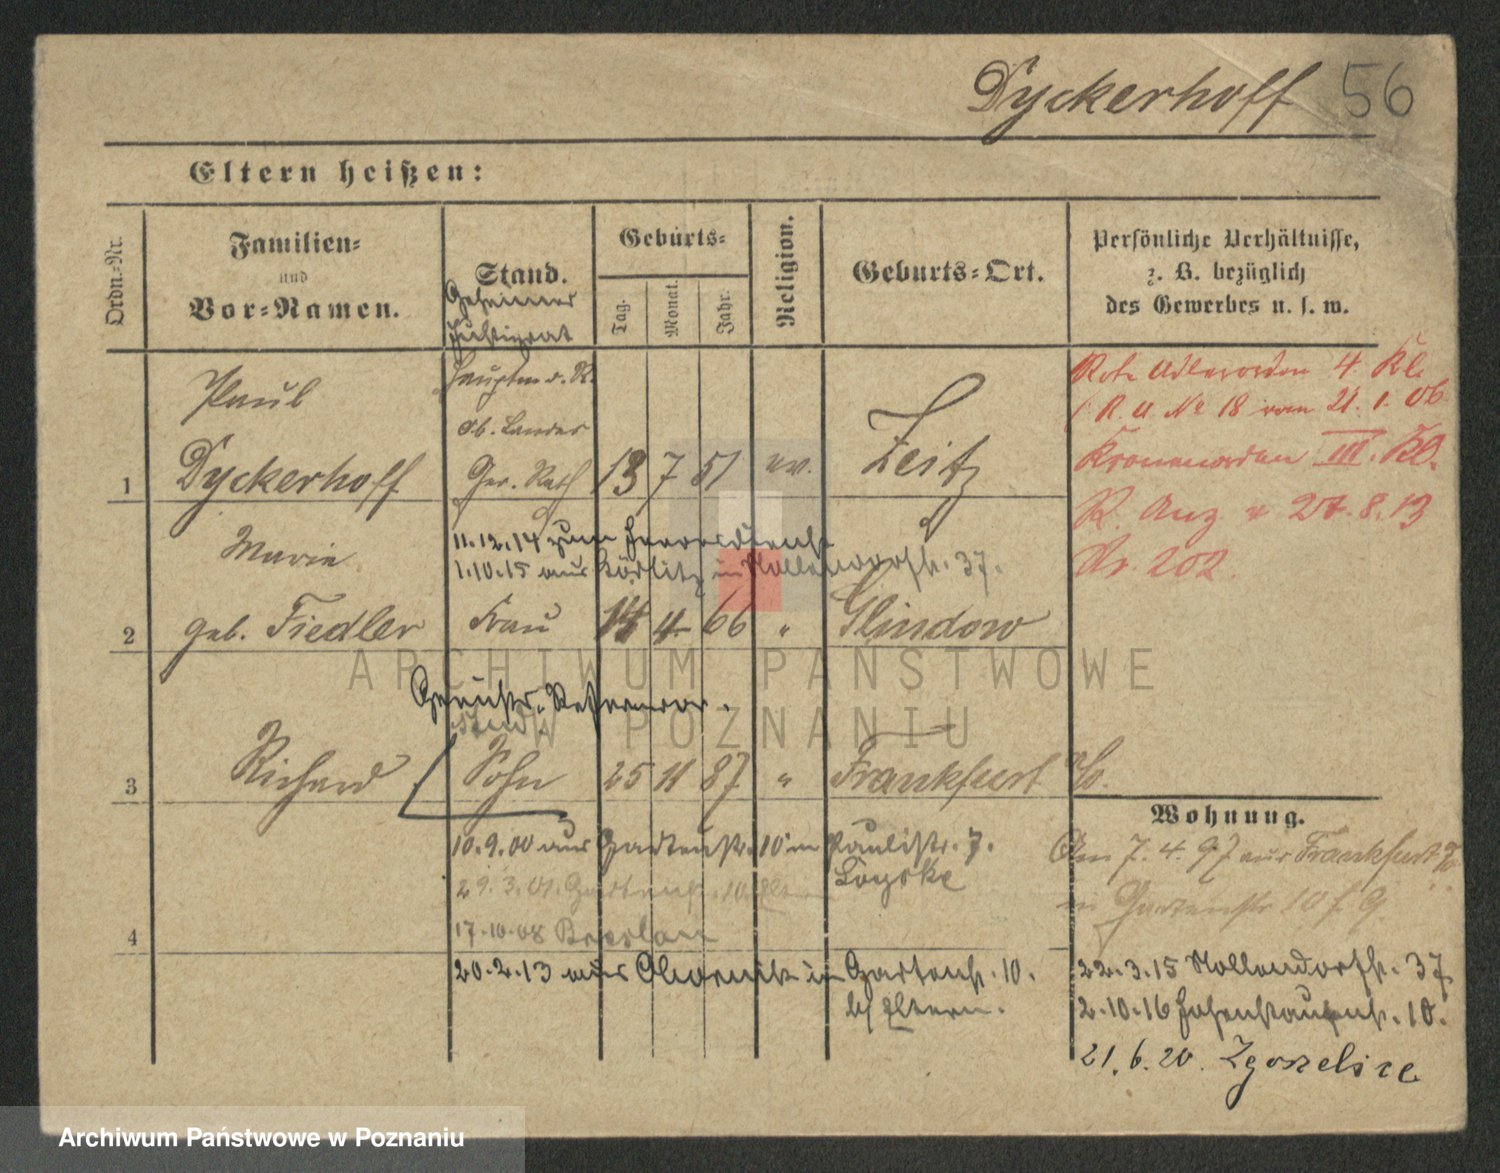 Dyckerhoff 56
Eltern heißen:
Ordn.-Nr.
Familien-
und
Vor-Namen.
Stand.
Geburts-
Tag.
Monat.
Jahr.
Religion.
Geburts-Ort.
Persönliche Verhältnisse,
z. B. bezüglich
des Gewerbes u. s. w.
Geheimer
Justizrat
Hauptm d. R.
Ob. Landes
Ger. Rath
1
Paul
Dyckerhoff
13 7 51 ev.
Zeitz
Rote Adlerorden 4. Kl.
( R. A. No 18 vom 21. 1. 06
Kronenorden III. Kl.
R. Anz v 27. 8. 13
Nr. 202.
11.12.14 zum Heeresdienst
1.10.15 aus Görlitz in Nollendorfstr. 37.
2
Marie
geb. Fiedler
Frau
14 4 66 "
Glindow
Gerichts-Referendar.
Stud.
3
Richard
Sohn
25 11 87 "
Frankfurt a/O.
Wohnung.
10.9.00 aus Gartenstr. 10 in Paulistr. 7.
29.3.01. Gartenstr. 10. Eltern
17.10.08 Breslau
4
20.2.13 aus Obornik in Gartenstr. 10.
b/ Eltern.
Am 7. 4. 97 aus Frankfurt a/O.
in Gartenstr 10 f. 9.
22.3.15 Nollendorfstr. 37
2.10.16 Hohenstaufenstr. 10.
21.6.20. Zgorzelice
ARCHIWUM PAŃSTWOWE
W POZNANIU
Archiwum Państwowe w Poznaniu